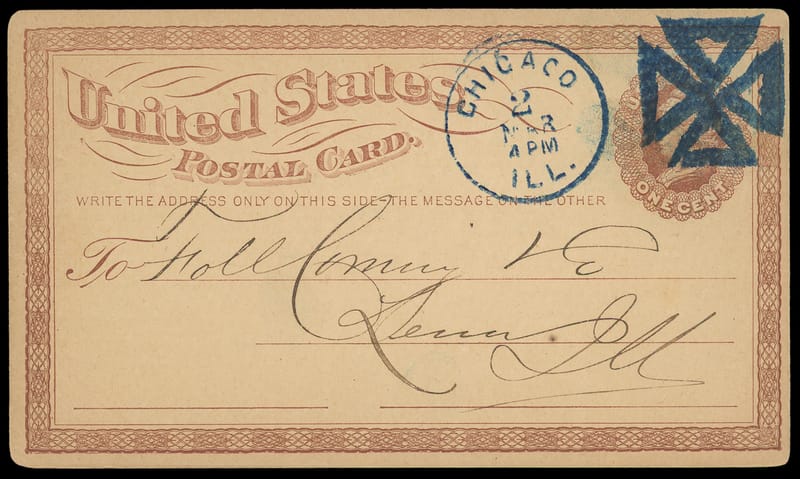 United States
Postal Card.
WRITE THE ADDRESS ONLY ON THIS SIDE-THE MESSAGE ON THE OTHER
CHICAGO
2
MAR
4 PM
ILL.
ONE CENT
To
Ill